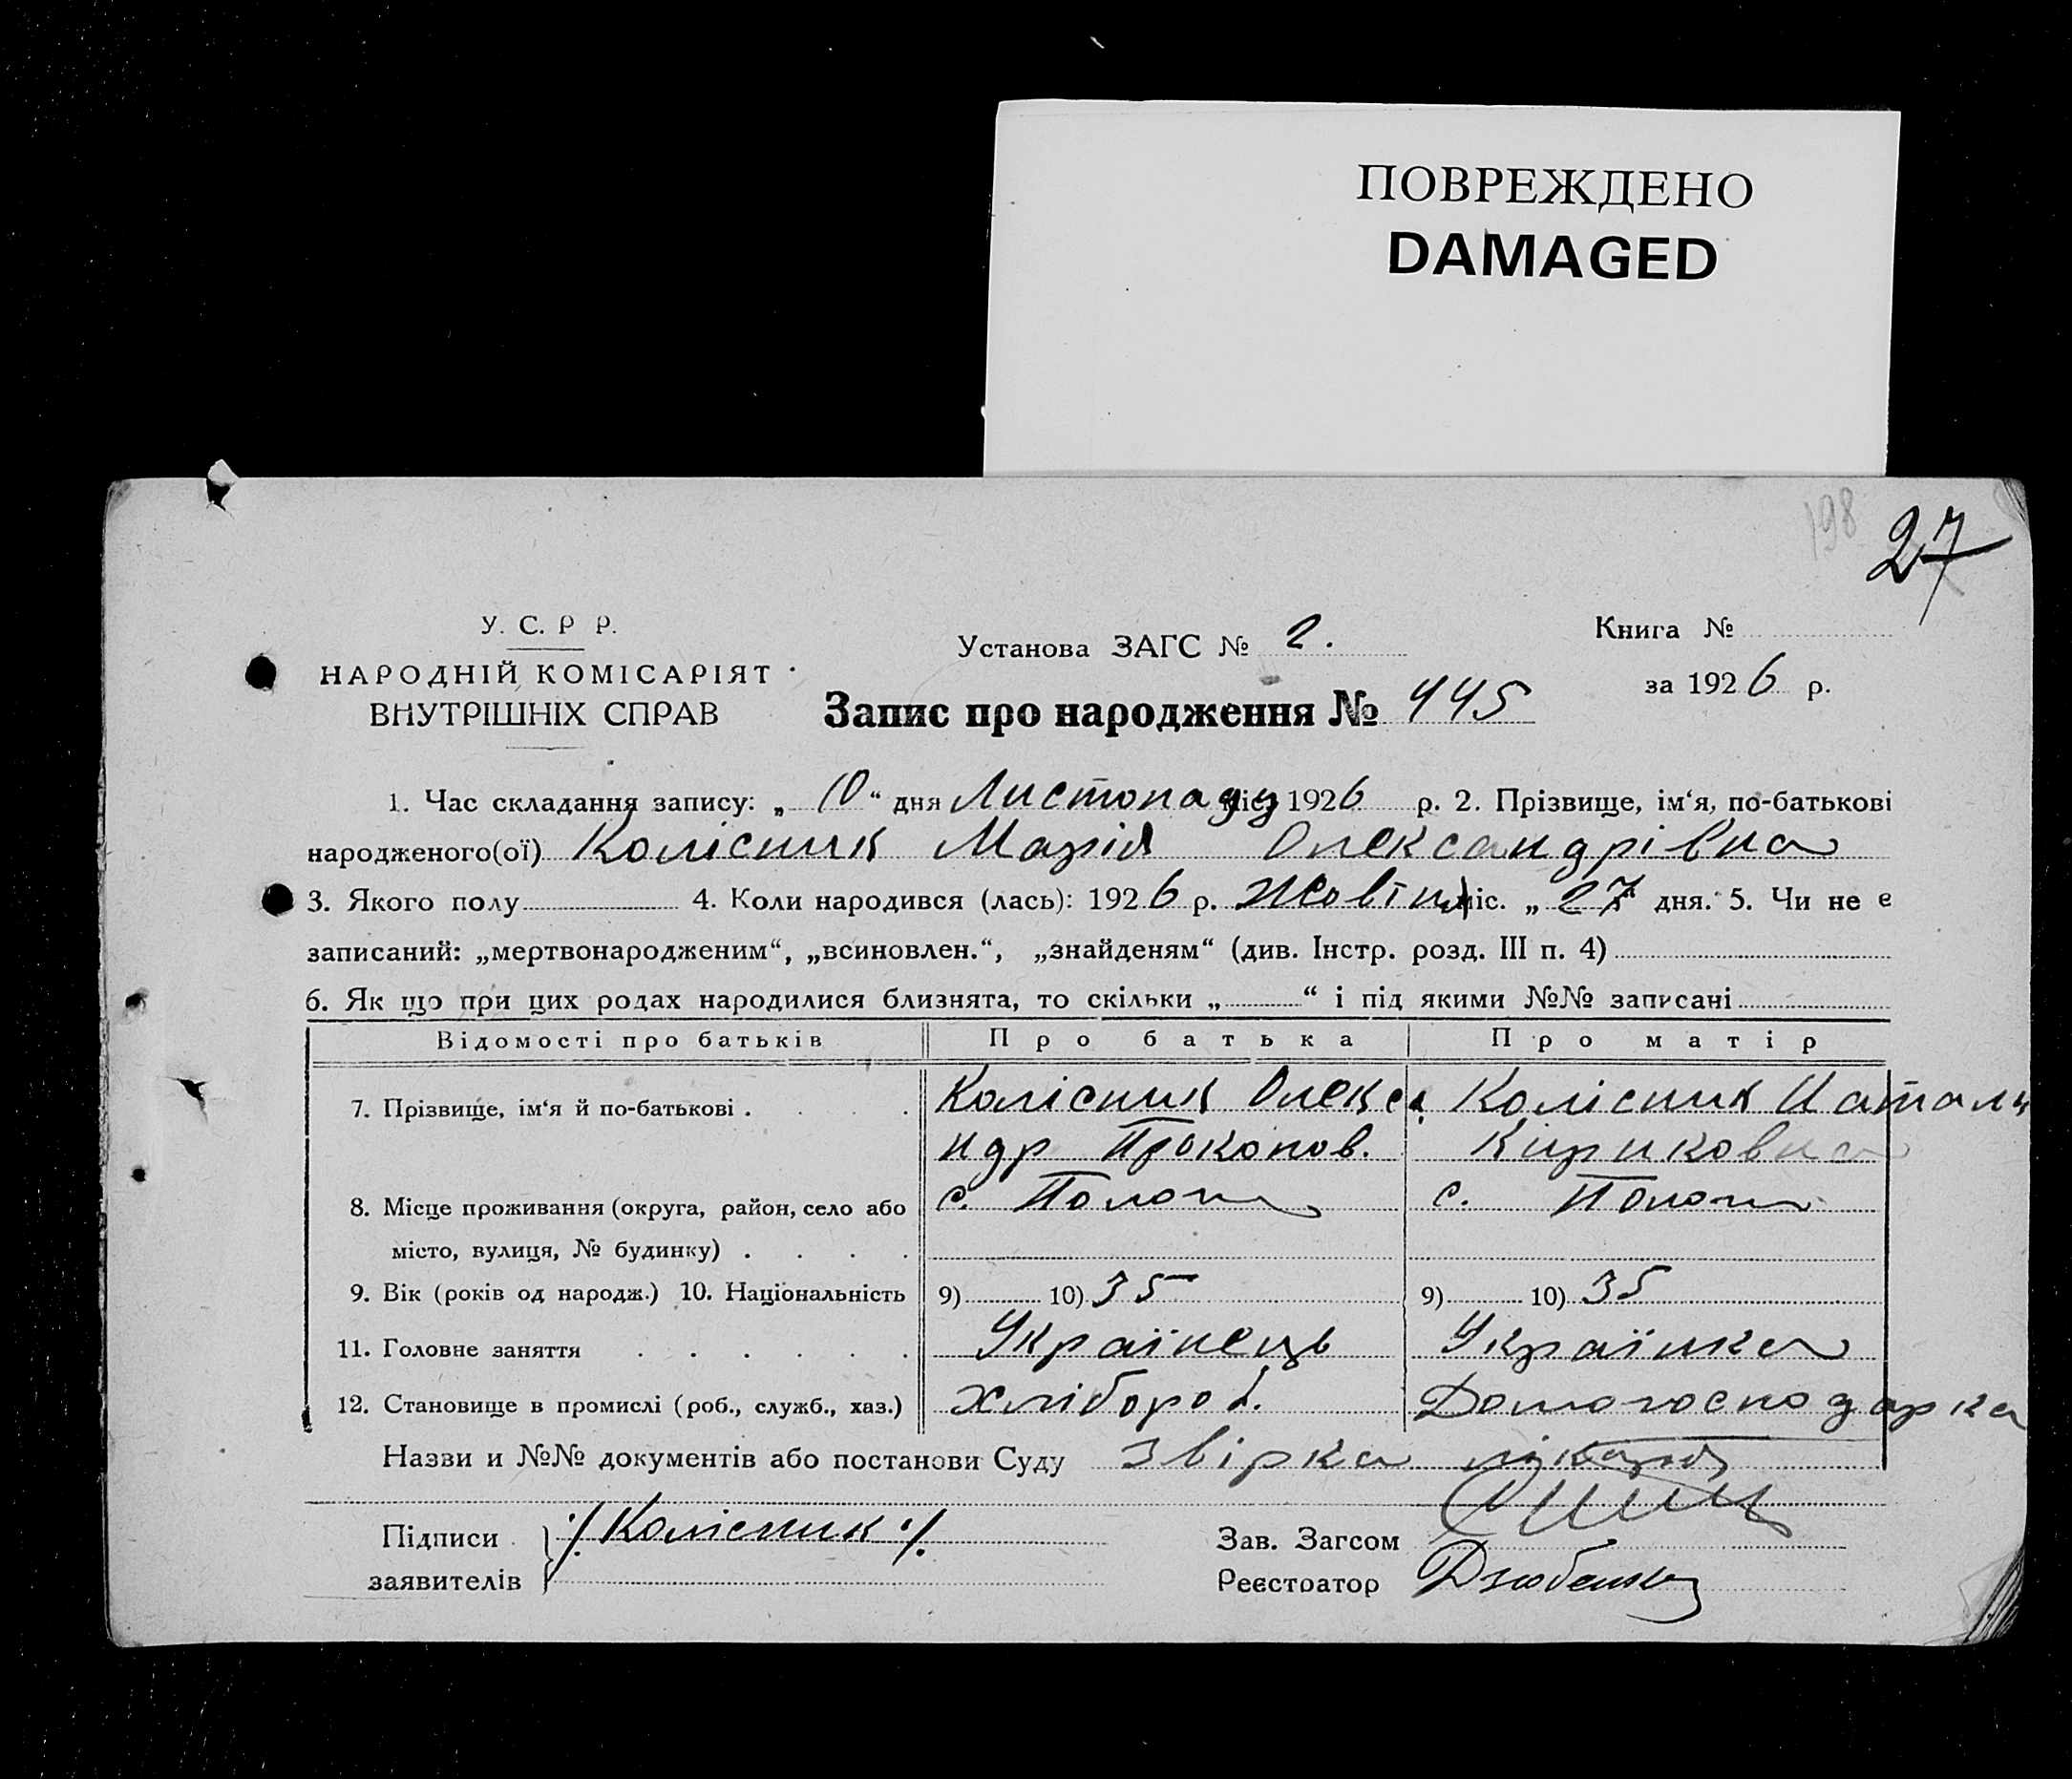 ПОВРЕЖДЕНО
DAMAGED
198
27
У. С. Р Р.
НАРОДНІЙ КОМІСАРІЯТ
ВНУТРІШНІХ СПРАВ
Установа ЗАГС № 2.
Книга №
за 1926 р.
Запис про народження № 445
1. Час складання запису: „10“ дня Листопаду міс. 1926 р. 2. Прізвище, ім‘я, по-батькові
народженого(ої) Колісник Марія Олександрівна
3. Якого полу 4. Коли народився (лась): 1926 р. Жовтн міс. „27“ дня. 5. Чи не є
записаний: „мертвонародженим“, „всиновлен.“, „знайденям“ (див. Інстр. розд. III п. 4)
6. Як що при цих родах народилися близнята, то скільки „ “ і під якими №№ записані
Відомості про батьків Про батька Про матір
7. Прізвище, ім‘я й по-батькові . . . . Колісник Олекса Колісник Натали
ндр Прокопов. Кириковна
8. Місце проживання (округа, район, село або с. Пологи с. Пологи
місто, вулиця, № будинку) . . . .
9. Вік (років од народж.) 10. Національність 9) 10) 35 9) 10) 35
11. Головне заняття . . . . . . Українець Українка
12. Становище в промислі (роб., служб., хаз.) Хлібороб. Домогосподарка
Назви и №№ документів або постанови Суду звірка лікаря
Підписи ./. Колісник ./. Зав. Загсом
заявителів Реєстратор